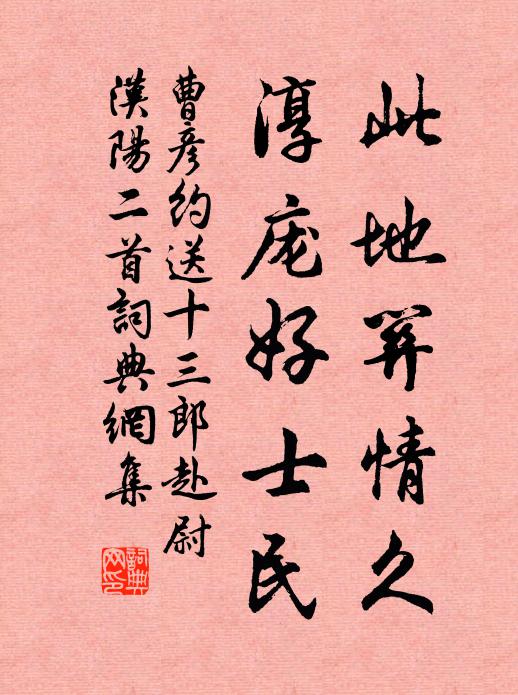 此地關情久
淳庬好士民
曹彥約送十三郎赴尉
漢陽二首詞典網集
詞典
网印